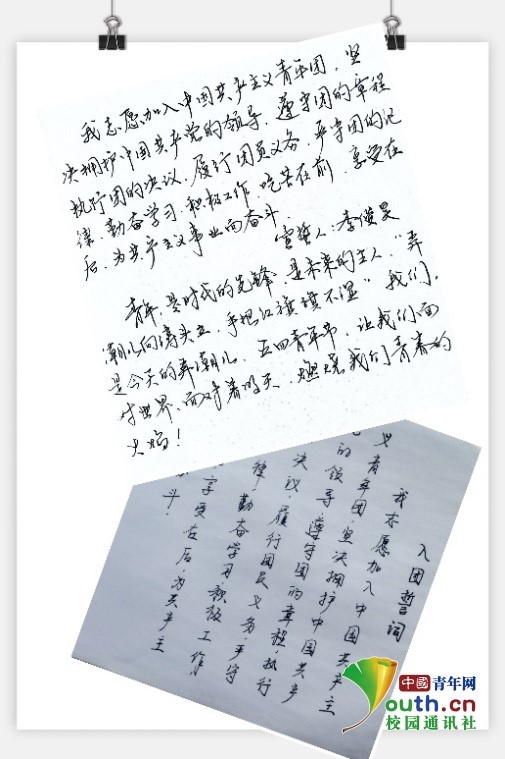 我志愿加入中国共产主义青年团，坚
决拥护中国共产党的领导，遵守团的章程
执行团的决议，履行团员义务，严守团的纪
律，勤奋学习，积极工作，吃苦在前，享受在
后，为共产主义事业而奋斗．
宣誓人：李俊昊
青年，是时代的先锋，是未来的主人，“弄
潮儿向涛头立，手把红旗旗不湿”我们，
是今天的弄潮儿，五四青年节，让我们面
对世界，面对着明天，燃烧我们青春的
火焰！
入团誓词
我志愿加入中国共产主
义青年团，坚决拥护中国共产
的领导，遵守团的章程，执行
决议，履行团员义务，严守
律，勤奋学习，积极工作
享受在后，为共产主
斗．
中國青年网
youth.cn
校园通讯社